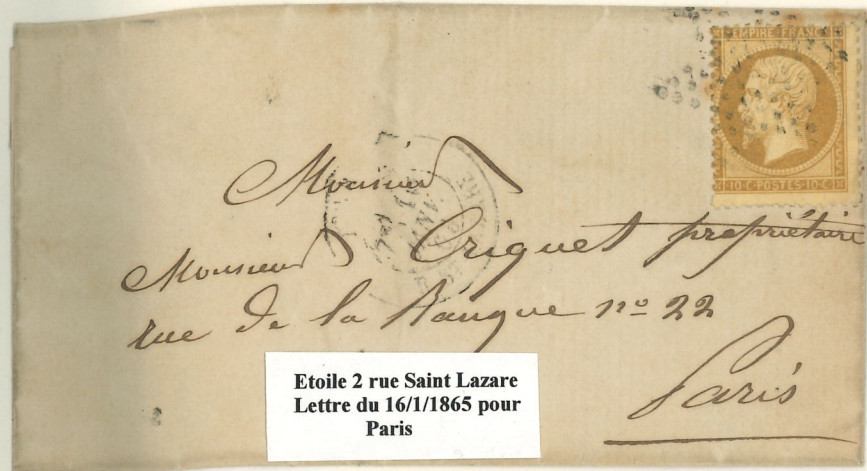 EMPIRE FRANC
10 C POSTES 10 C
Monsieur
Monsieur Criquet propriétaire
rue de la Banque nº 22
Paris
Etoile 2 rue Saint Lazare
Lettre du 16/1/1865 pour
Paris